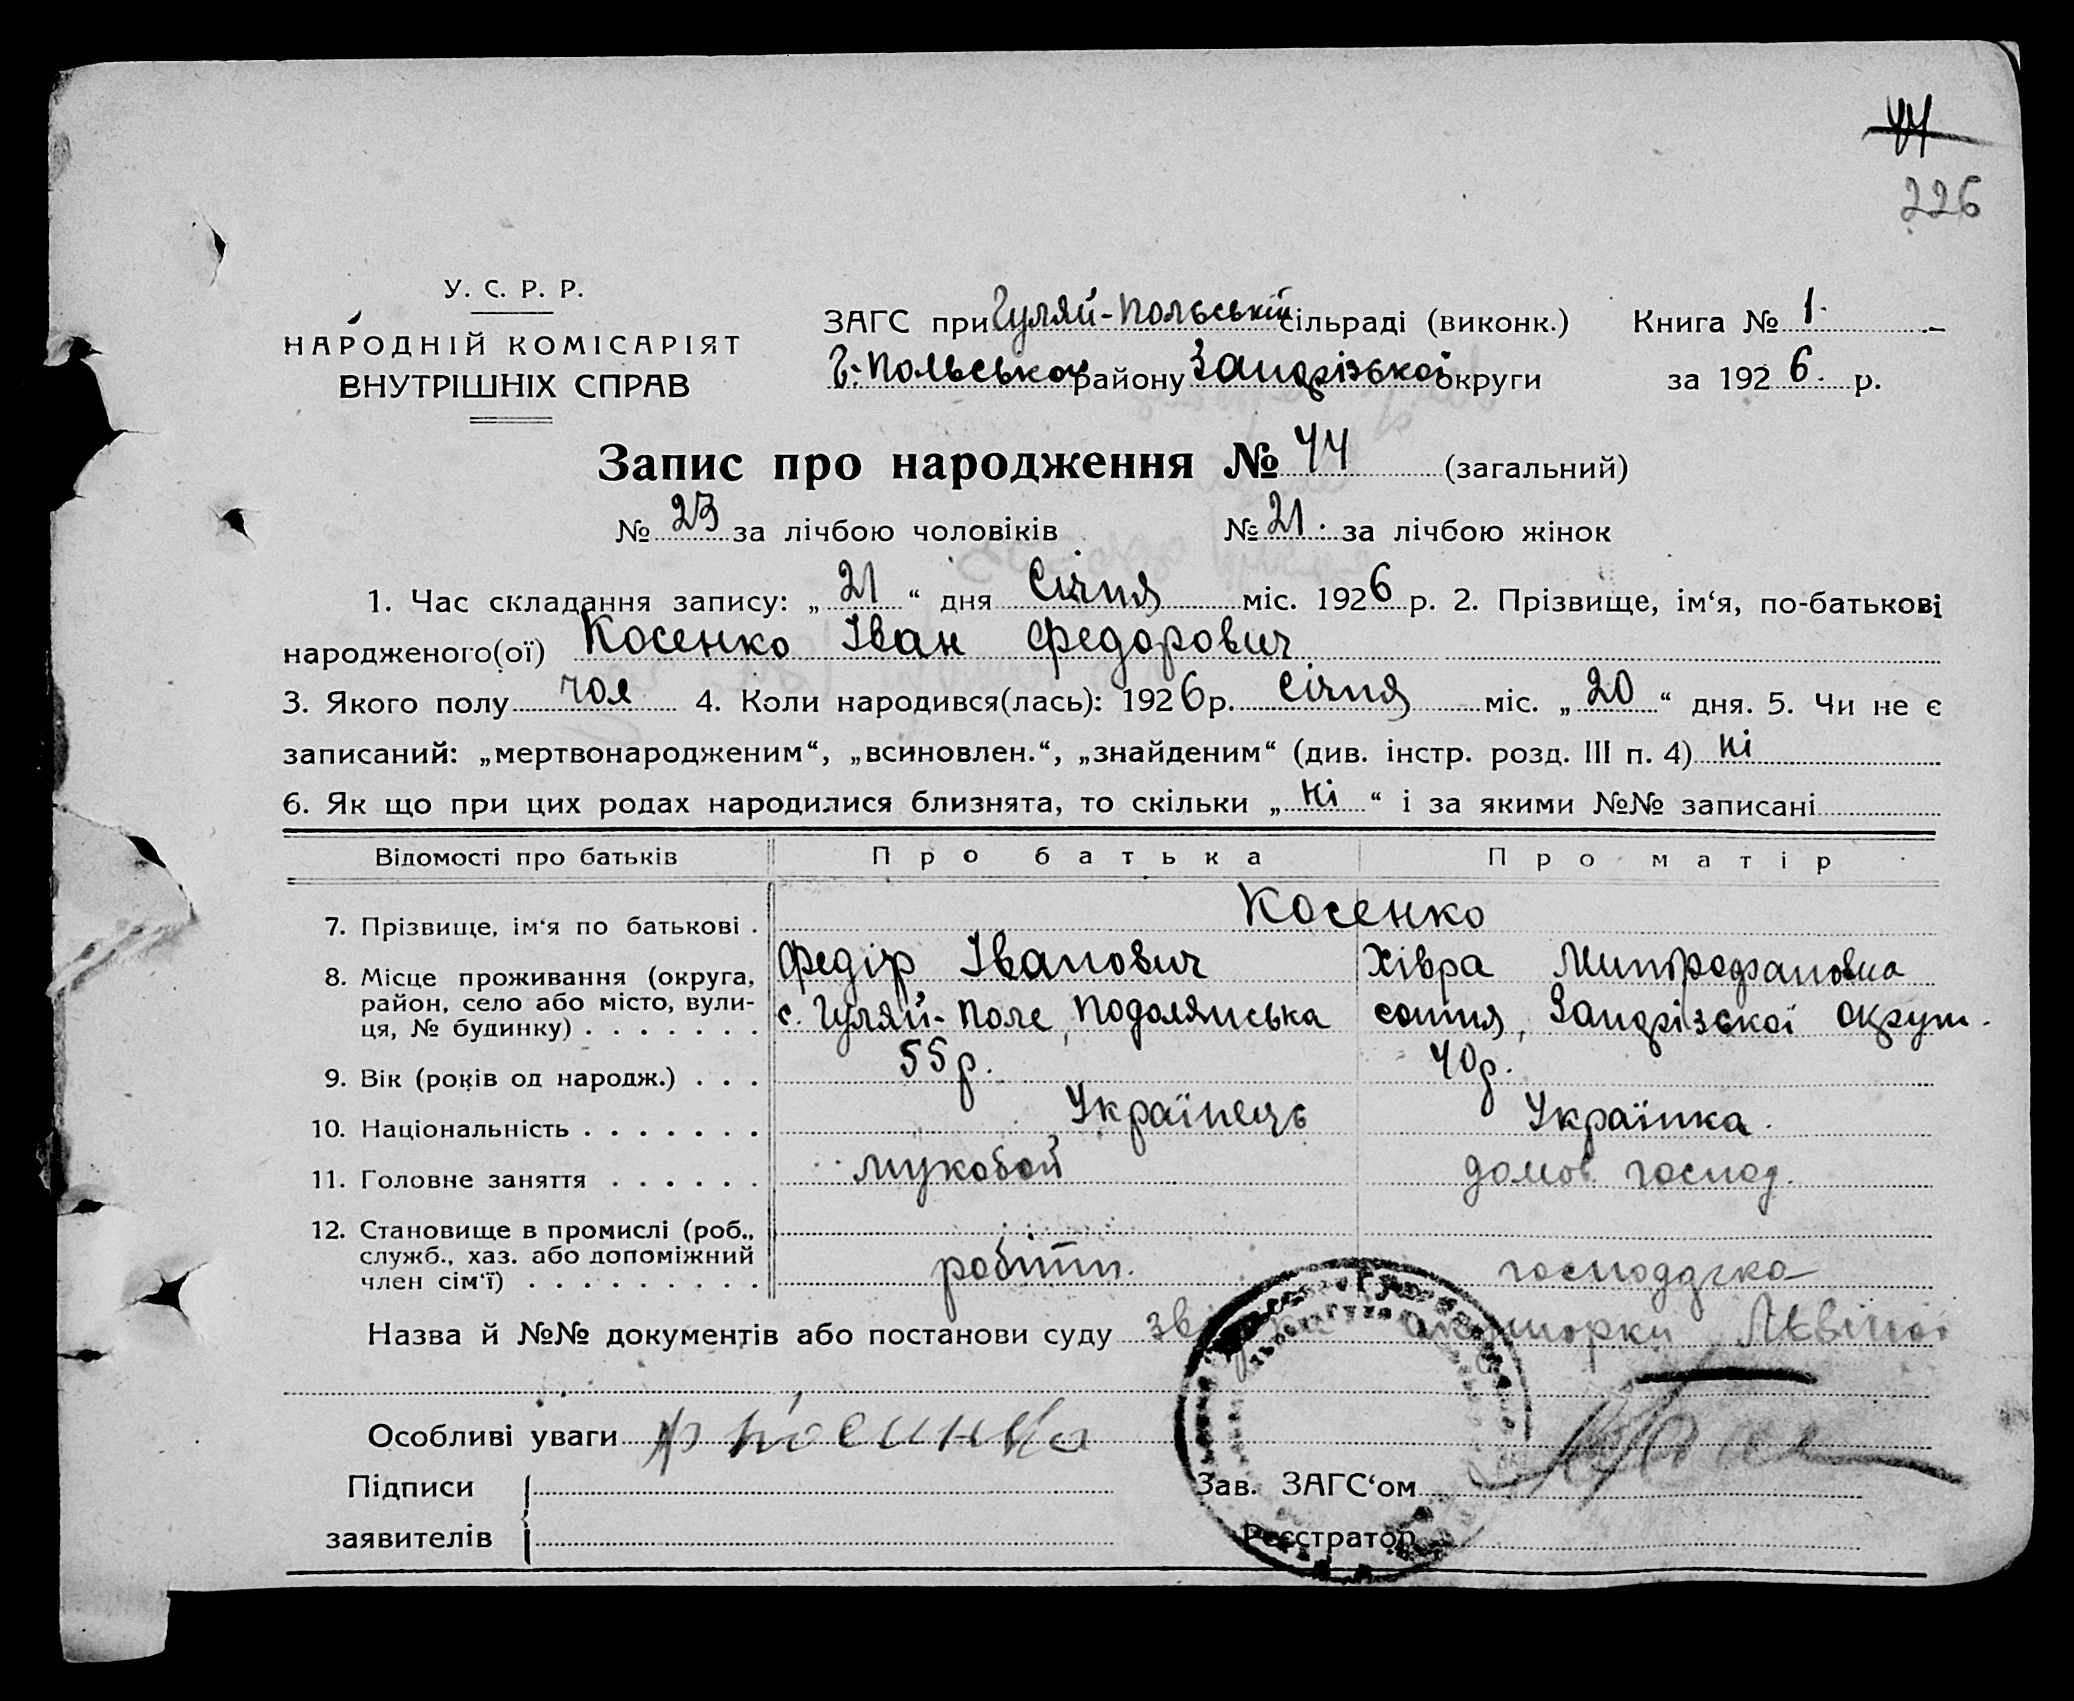 44
226
У. С. Р. Р.
НАРОДНІЙ КОМІСАРІЯТ
ВНУТРІШНІХ СПРАВ
ЗАГС при Гуляй-Польській сільраді (виконк.) Книга № 1.
Г.-Польського району Запорізької округи за 1926. р.
Запис про народження № 44 (загальний)
№ 23 за лічбою чоловіків № 21. за лічбою жінок
1. Час складання запису: „21“ дня Січня міс. 1926 р. 2. Прізвище, ім‘я, по-батькові
народженого(ої) Косенко Іван Федорович
3. Якого полу чол 4. Коли народився(лась): 1926 р. Січня міс. „20“ дня. 5. Чи не є
записаний: „мертвонародженим“, „всиновлен.“, „знайденим“ (див. інстр. розд. III п. 4) ні
6. Як що при цих родах народилися близнята, то скільки „ні“ і за якими №№ записані
Відомості про батьків Про батька Про матір
Косенко
7. Прізвище, ім‘я по батькові .
Федір Іванович Хівра Митрофановна
8. Місце проживання (округа, район, село або місто, вулиця, № будинку) . . . . . . .
с. Гуляй-Поле, Подолянська сотня, Запорізької округи.
9. Вік (років од народж.) . . . 55 р. 40 р.
10. Національність . . . . . . . Українець Українка.
11. Головне заняття . . . . . . мукобой домов. господ.
12. Становище в промислі (роб., служб., хаз. або допоміжний член сім‘ї) . . . . . . . . .
робітн. господарка
Назва й №№ документів або постанови суду акушорки
Особливі уваги
Підписи
заявителів
Зав. ЗАГС‘ом
Реєстратор